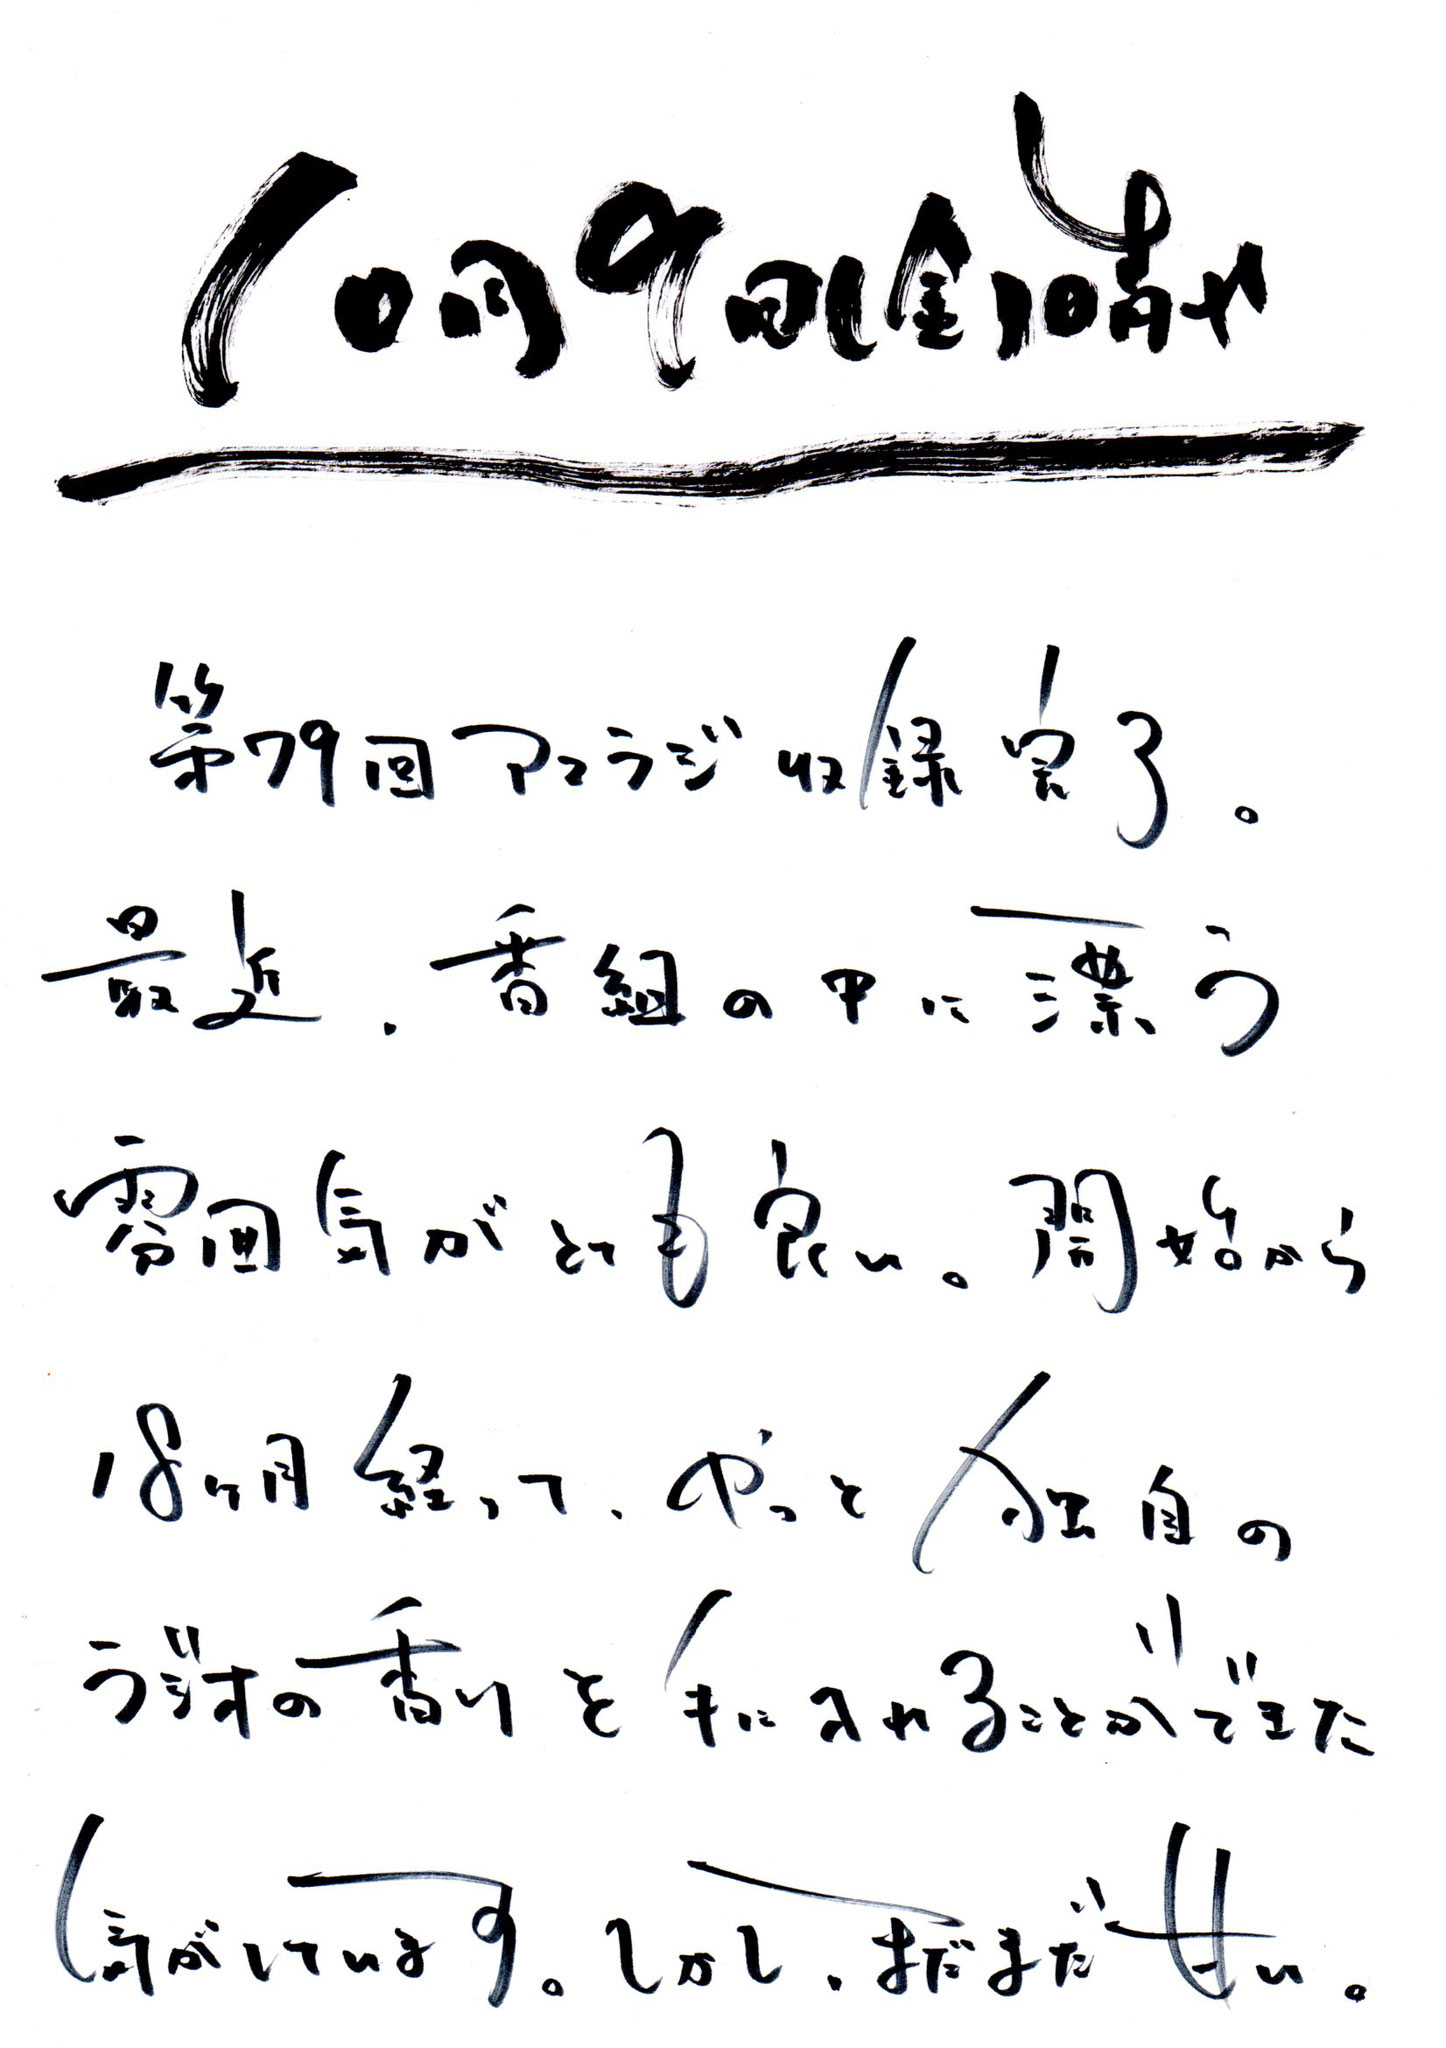 10月9日(金)晴や
第79回アコラジ収録完了。
最近、番組の中に漂う
雰囲気がとても良い。開始から
18ヶ月経って、やっと独自の
ラジオの香りを手に入れることができた
気がしています。しかし、まだまだ甘い。